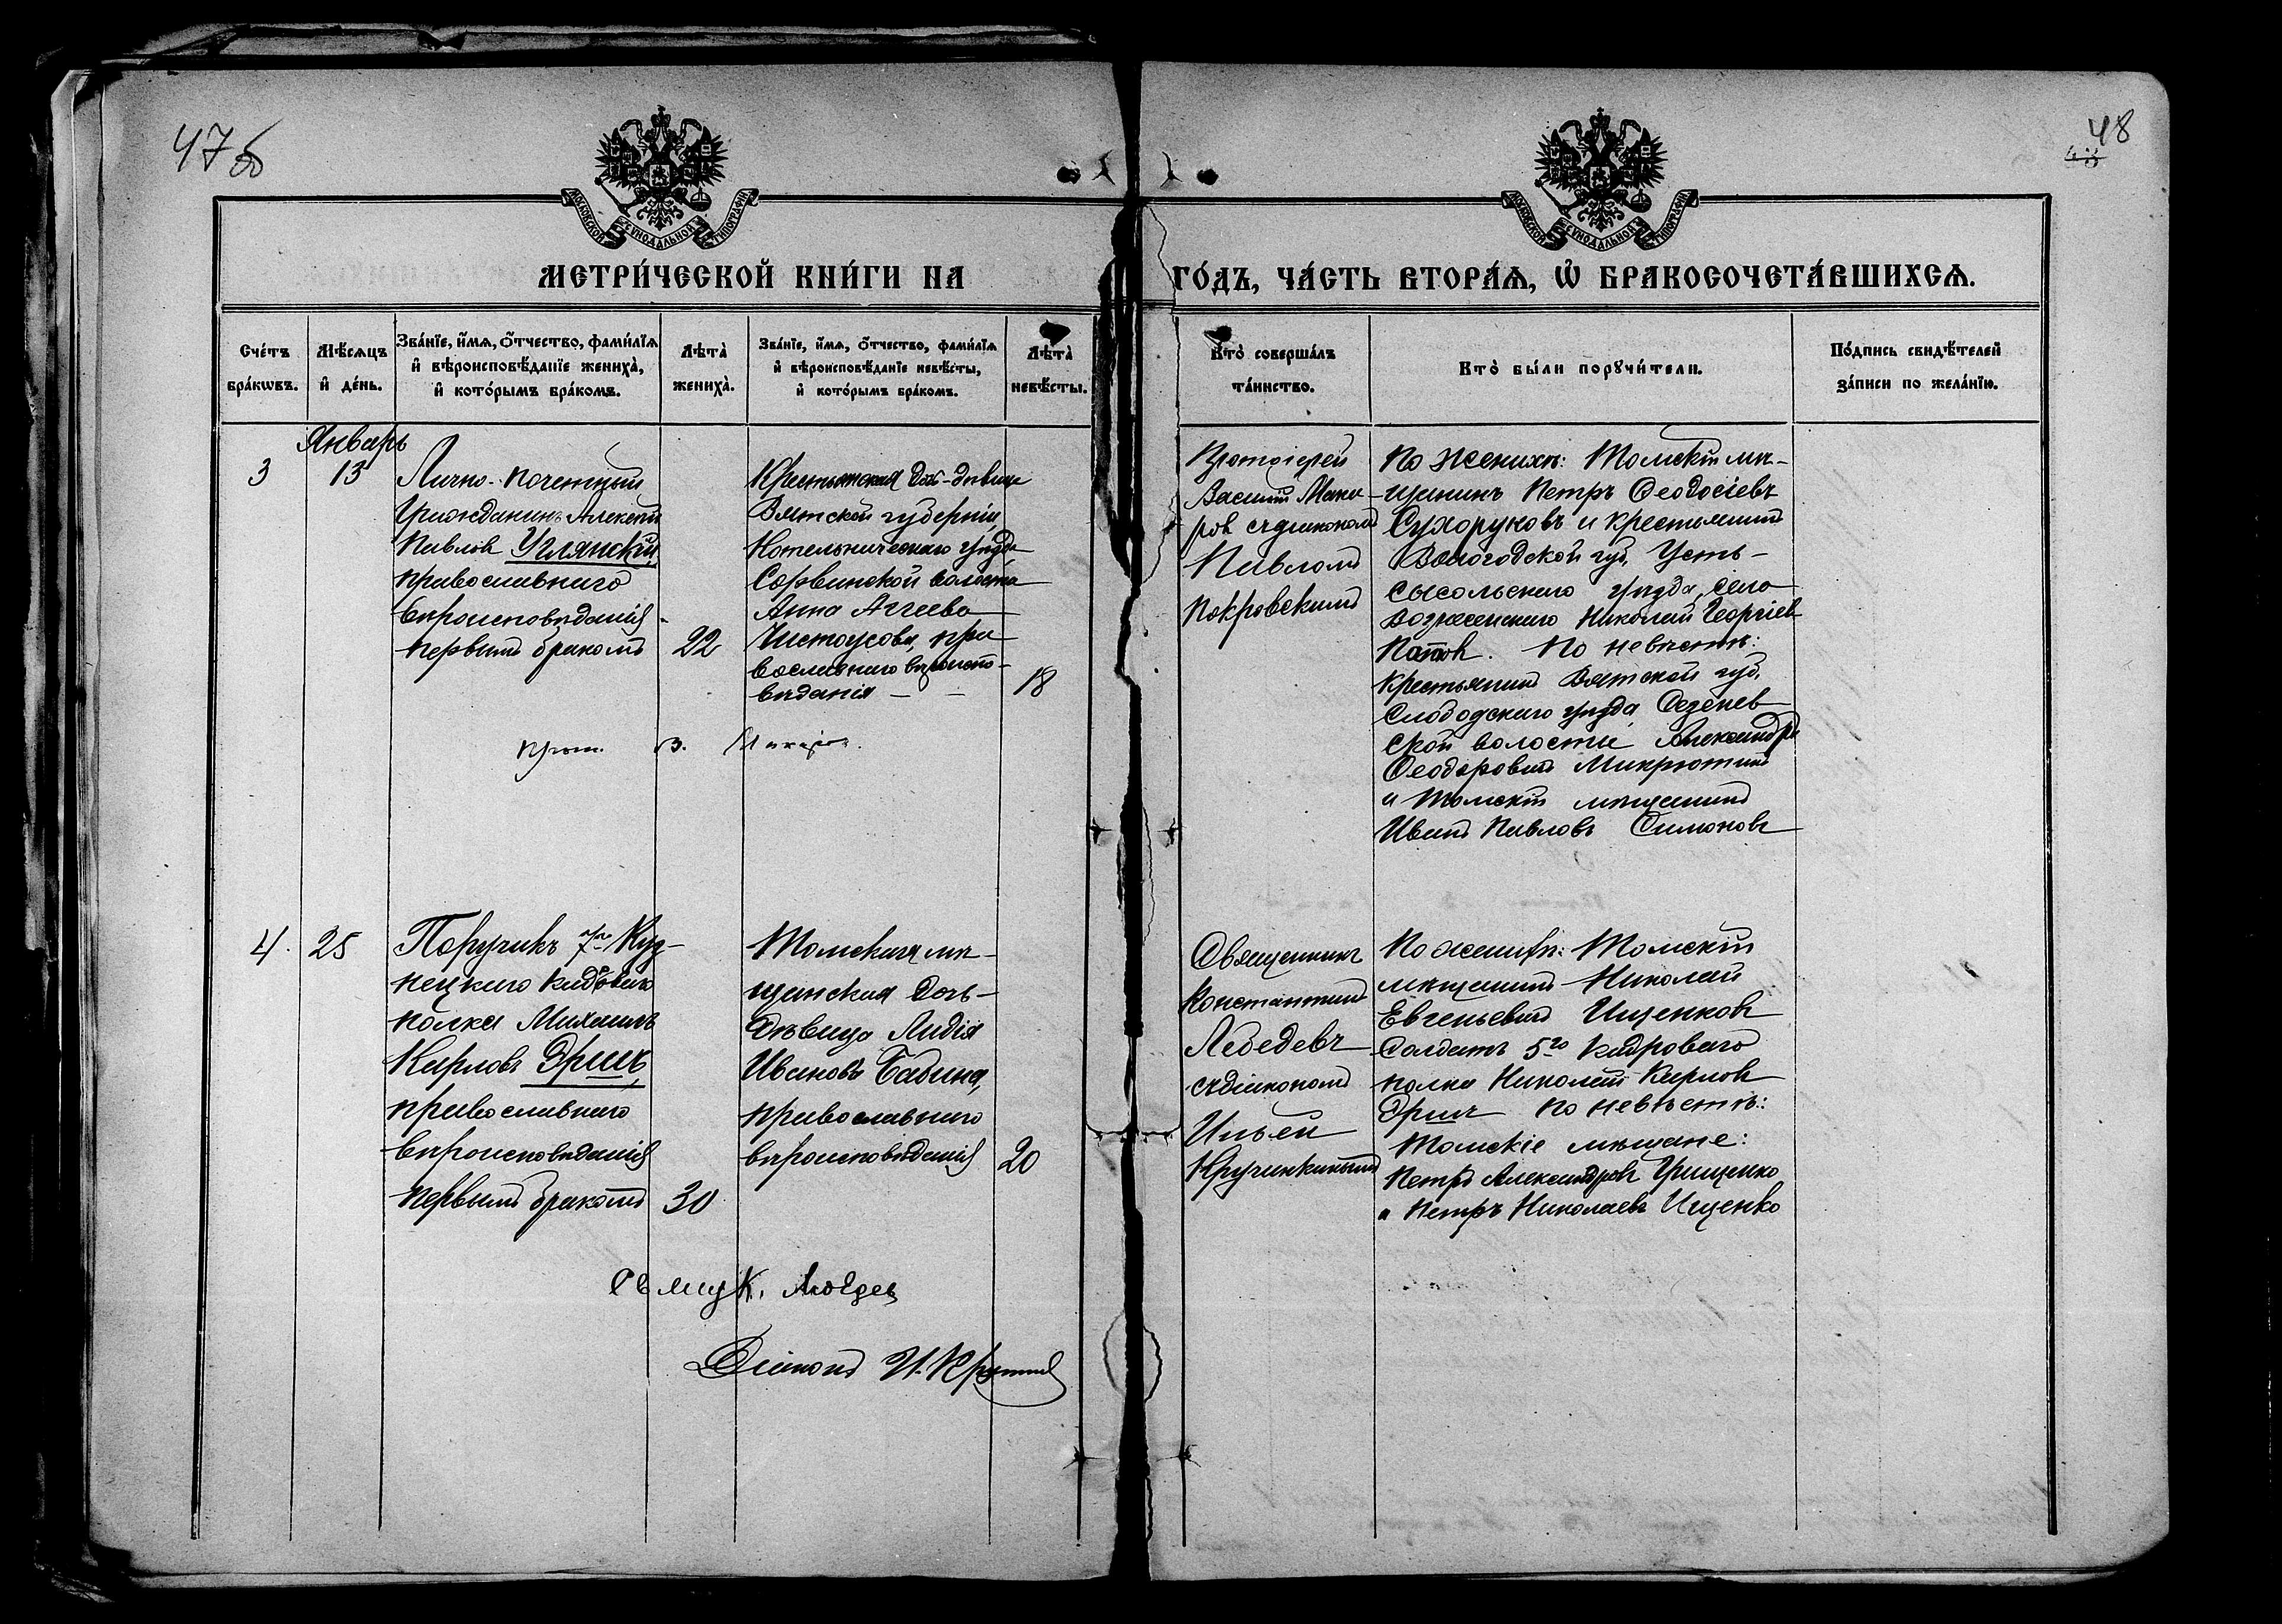 47 об
48
МОСКОВСКОЙ СУНОДАЛЬНОЙ ТИПОГРАФІИ
МОСКОВСКОЙ СУНОДАЛЬНОЙ ТИПОГРАФІИ
МЕТРИ́ЧЕСКОЙ КНИ́ГИ НА
ГО́ДЪ, ЧА́СТЬ ВТОРА́Ѧ, Ѽ БРАКОСОЧЕТА́ВШИХСѦ.
Сче́тъ
бра́кѡвъ.
Мѣ́сѧцъ
и҆ де́нь.
Зва́нїе, и҆́мѧ, о҆́тчество, фами́лїѧ
и҆ вѣроисповѣ́данїе жениха̀,
и҆ кото́рымъ бра́комъ.
Лѣта̀
жениха̀.
Зва́нїе, и҆́мѧ, о҆́тчество, фами́лїѧ
и҆ вѣроисповѣ́данїе невѣ́сты,
и҆ кото́рымъ бра́комъ.
Лѣта̀
невѣ́сты.
Кто̀ соверша́лъ
та́инство.
Кто̀ бы́ли порꙋчи́тели.
По́дпись свидѣ́телей
за́писи по жела́нїю.
Январь
3
13
Лично-почетный
Гражданинъ Алексѣй
Павлов Углянскій,
православнаго
вѣроисповѣданія
первымъ бракомъ
22
Крестьянская дочь-дѣвица
Вятской губерніи,
Котельническаго уѣзда
Сорвинской волости
Анна Аггеева
Чистоусова, пра
вославнаго вѣроиспо-
вѣданія
18
Протоіерей
Василій Мака-
ров съ діакономъ
Павломъ
Покровскимъ
По женихѣ: Томскій мѣ-
щанинъ Петръ Ѳеодосіевъ
Сухоруковъ и крестьянинъ
Вологодской губ, Усть-
сысольскаго уѣзда, село
вознесенскаго Николай Георгіев
Попов. По невѣстѣ:
крестьянинъ Вятской губ,
Слободскаго уѣзда
ской волости Александръ
Ѳеодоровъ Микрютинъ
и Томскій мѣщанинъ
Иванъ Павловъ Симоновъ
Прот. В. Макаров.
4.
25
Поручикъ 7го Куз-
нецкаго кадроваго
полка Михаилъ
Карловъ Эришъ,
православнаго
вѣроисповѣданія
первымъ бракомъ
30
Томская мѣ-
щанская дочь-
дѣвица Лидія
Иванова Бабина,
православнаго
вѣроисповѣданія
20
Священникъ
Константинъ
Лебедевъ
съ діакономъ
Ильей
Кручинкинымъ
По женихѣ: Томскій
мѣщанинъ Николай
Евгеньевъ Ищенковъ
Солдатъ 5го кадроваго
полка Николай Карлов
Эришъ По невѣстѣ:
Томскіе мѣщане:
Петръ Александровъ Грищенко
и Петръ Николаевъ Ищенко
К. Лебедев
Діаконъ И.